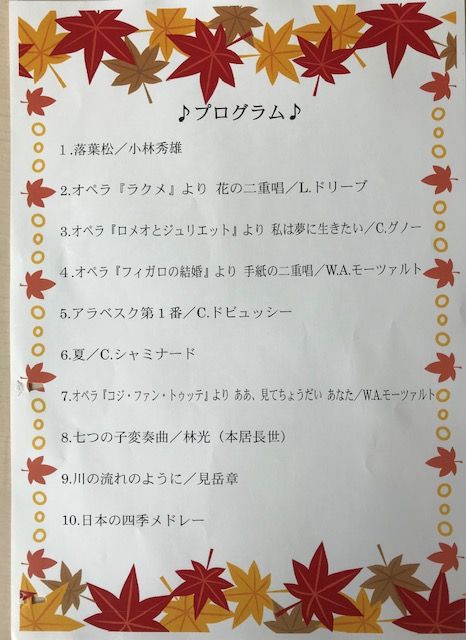 ♪プログラム♪
1.落葉松／小林秀雄
2.オペラ『ラクメ』より 花の二重唱／L.ドリーブ
3.オペラ『ロメオとジュリエット』より 私は夢に生きたい／C.グノー
4.オペラ『フィガロの結婚』より 手紙の二重唱／W.A.モーツァルト
5.アラベスク第1番／C.ドビュッシー
6.夏／C.シャミナード
7.オペラ『コジ・ファン・トゥッテ』より ああ、見てちょうだい あなた／W.A.モーツァルト
8.七つの子変奏曲／林光（本居長世）
9.川の流れのように／見岳章
10.日本の四季メドレー